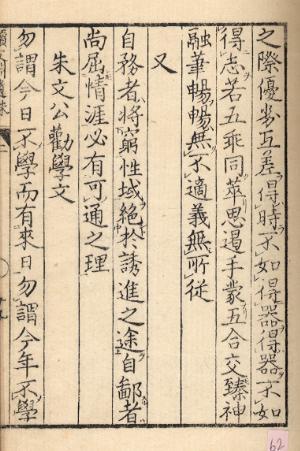 之際優劣互差得時不如得器得器不如
得志若五乖同萃思遏手蒙五合交臻神
融筆暢暢無不適義無所從
又
自務者將窮性域絕於誘進之途自鄙者
尚屈情涯必有可通之理
朱文公勸學文
勿謂今日不學而有來日勿謂今年不學
62